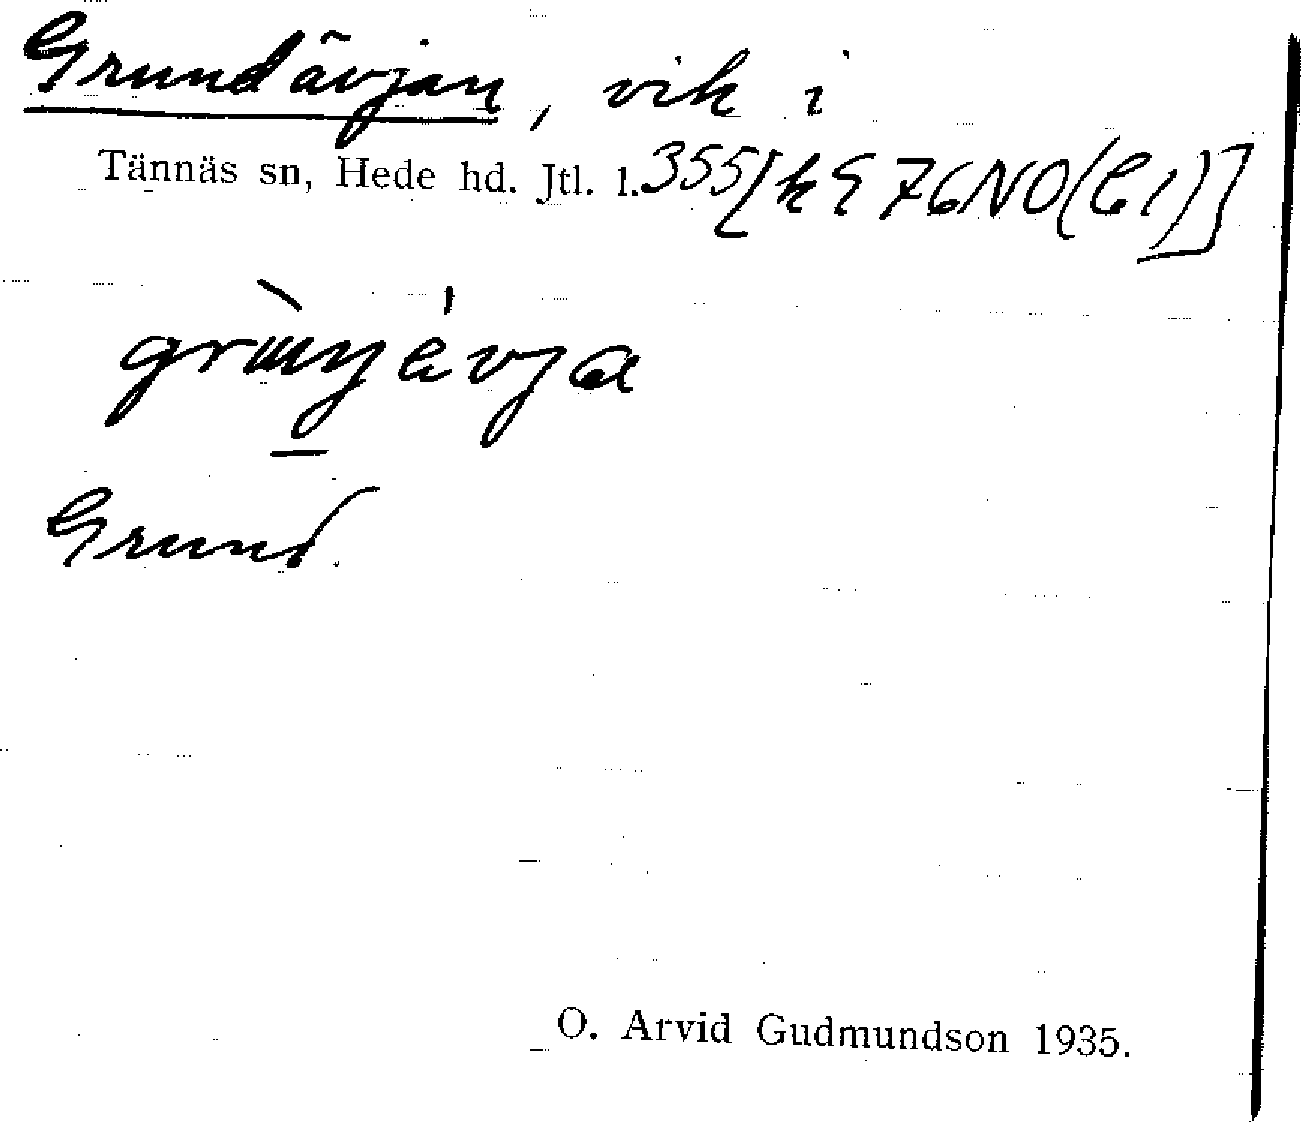 Grundävjan, vik i
Tännäs sn, Hede hd. Jtl. l. 355 [k §76NO(C1)]
Grund.
O. Arvid Gudmundson 1935.